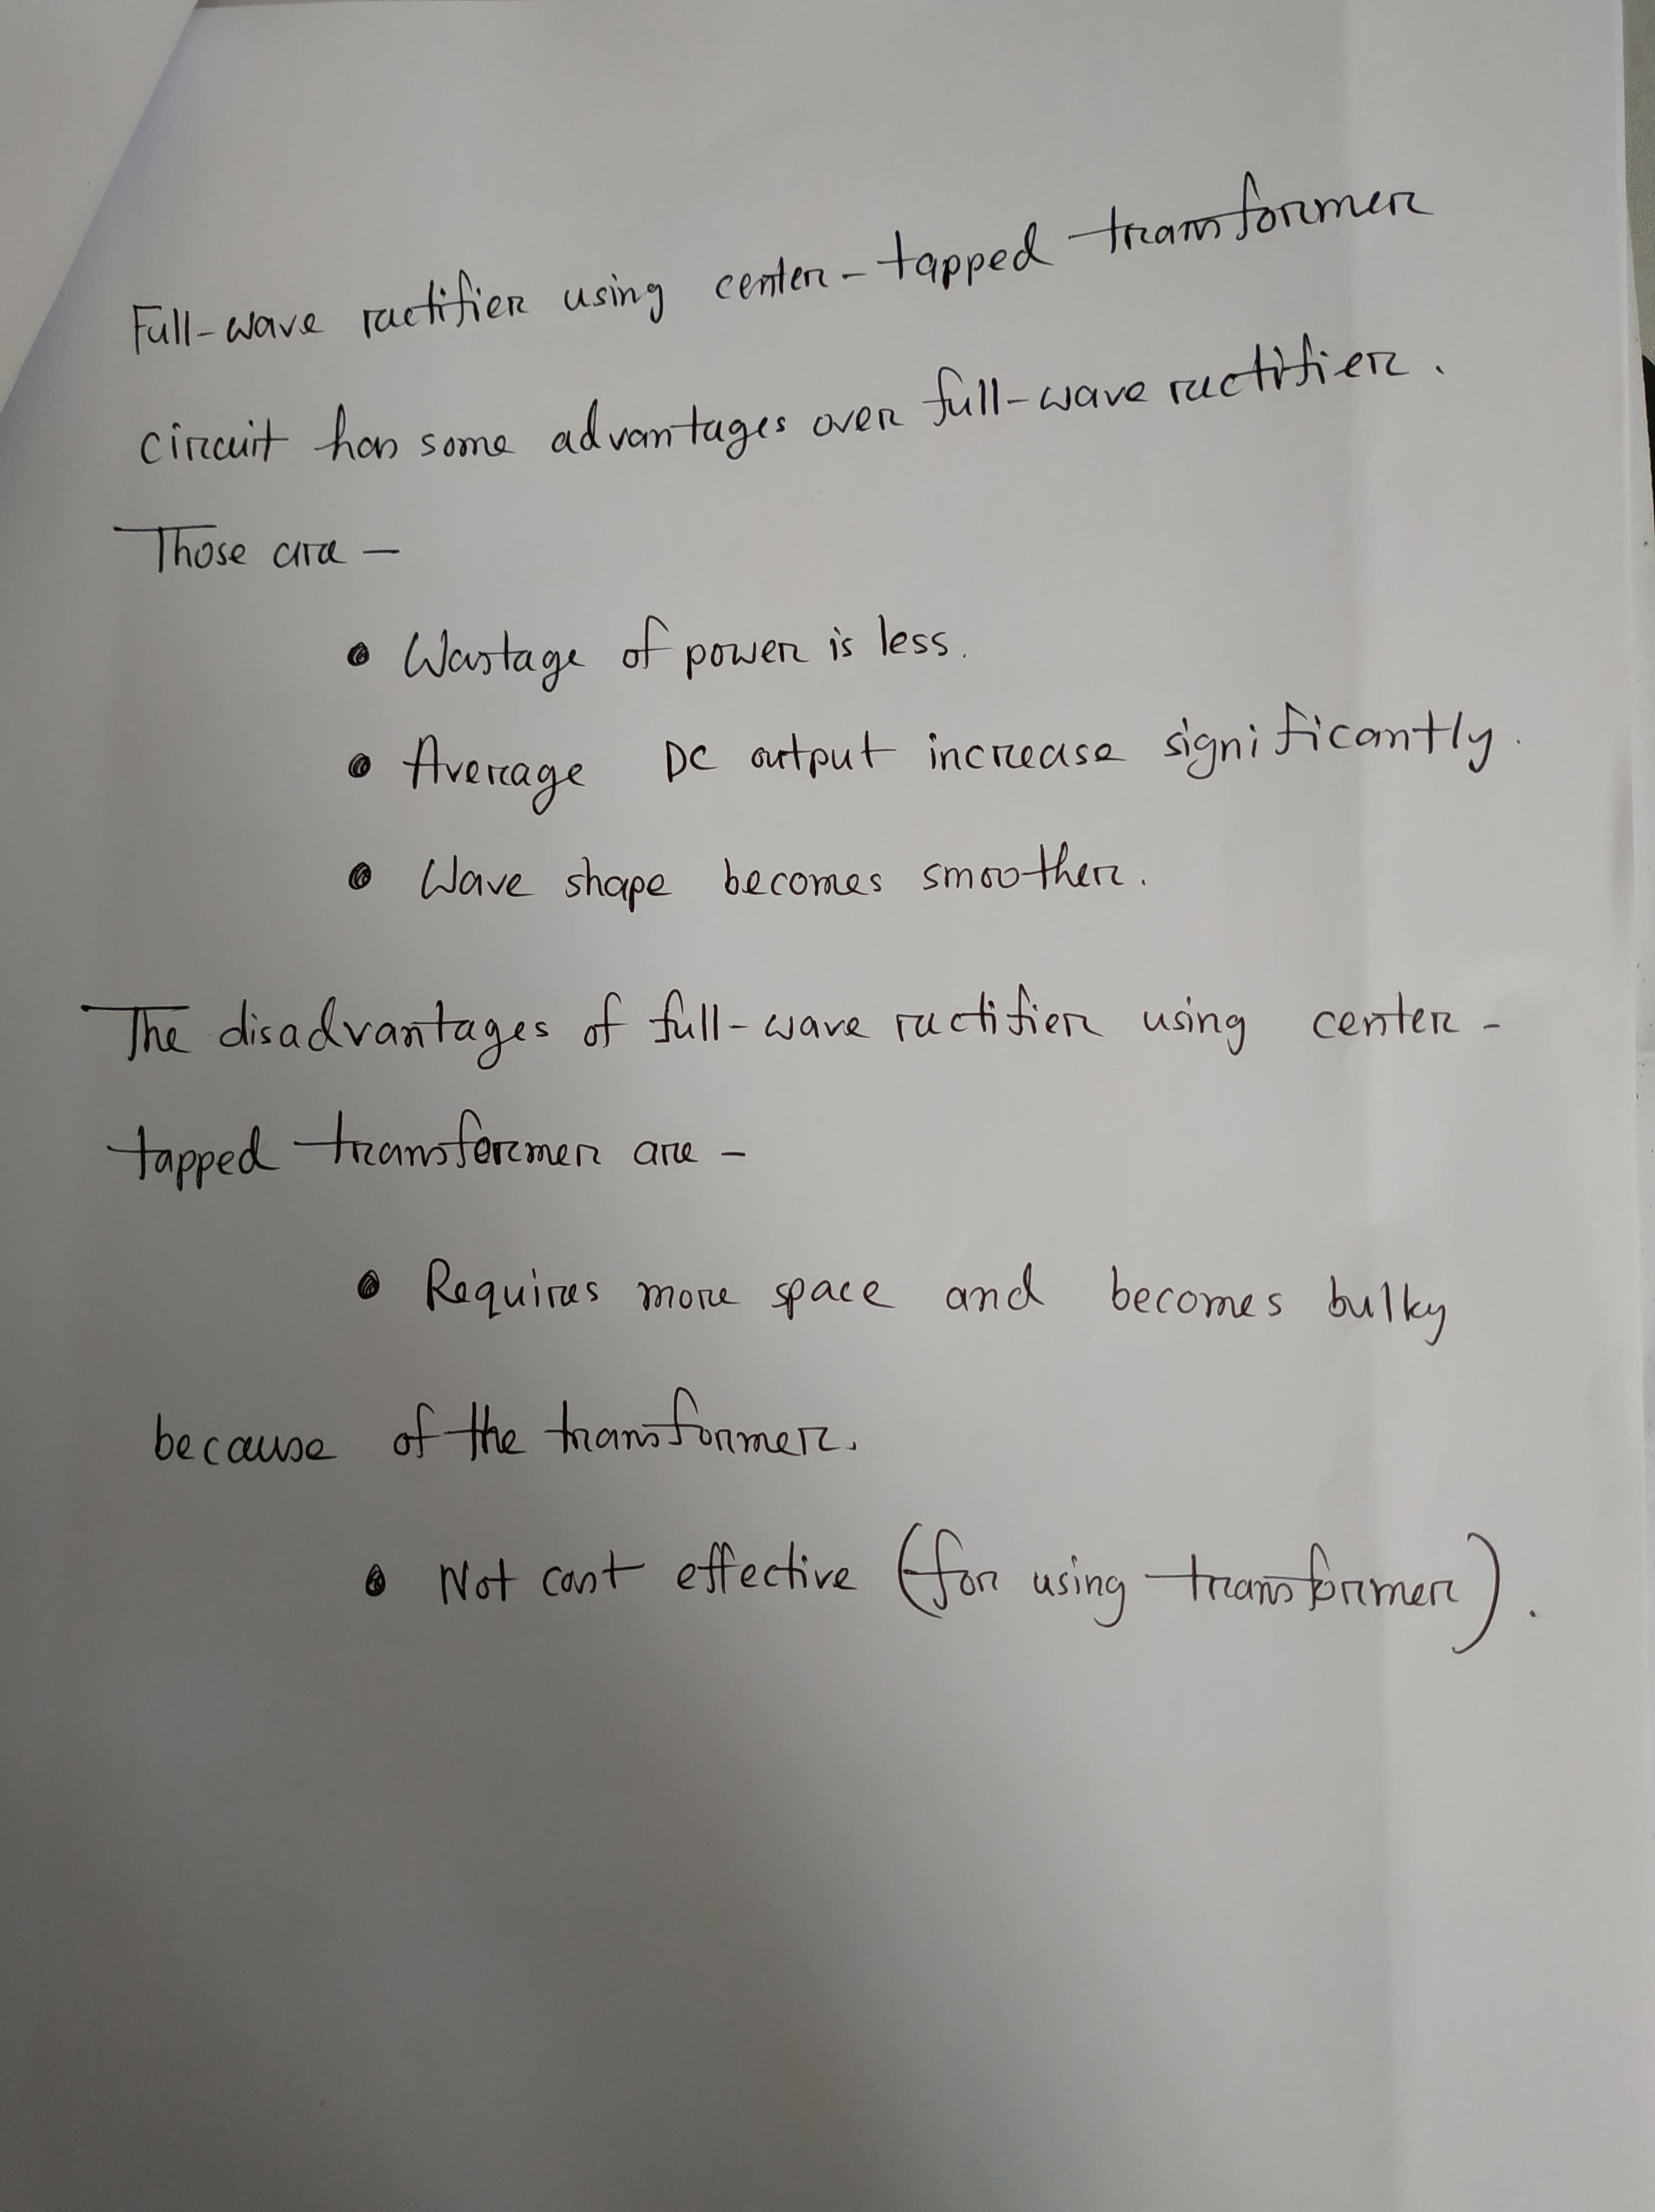 Full-wave rectifier using center-tapped transformer
circuit has some advantages over full-wave rectifier.
Those are -
• Wastage of power is less.
• Average DC output increase significantly.
• Wave shape becomes smoother.
The disadvantages of full-wave rectifier using center-
tapped transformer are -
• Requires more space and becomes bulky
because of the transformer.
• Not cost effective (for using transformer).